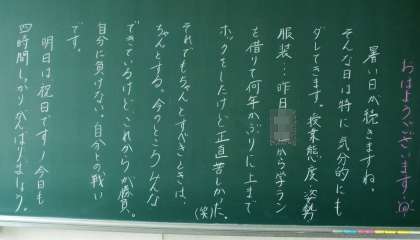 おはようございます
暑い日が続きますね。
そんな日は特に気分的にも
ダレてきます。授業態度、姿勢
服装…昨日から学ラン
を借りて何年かぶりに上まで
ホックをしたけど正直苦しかった。
(笑)
それでもちゃんとすべきときは、
ちゃんとする。今のところみんな
できているけど、これからが勝負。
自分に負けない。自分との戦い
です。
明日は祝日です!今日も
四時間しっかりがんばりましょう。